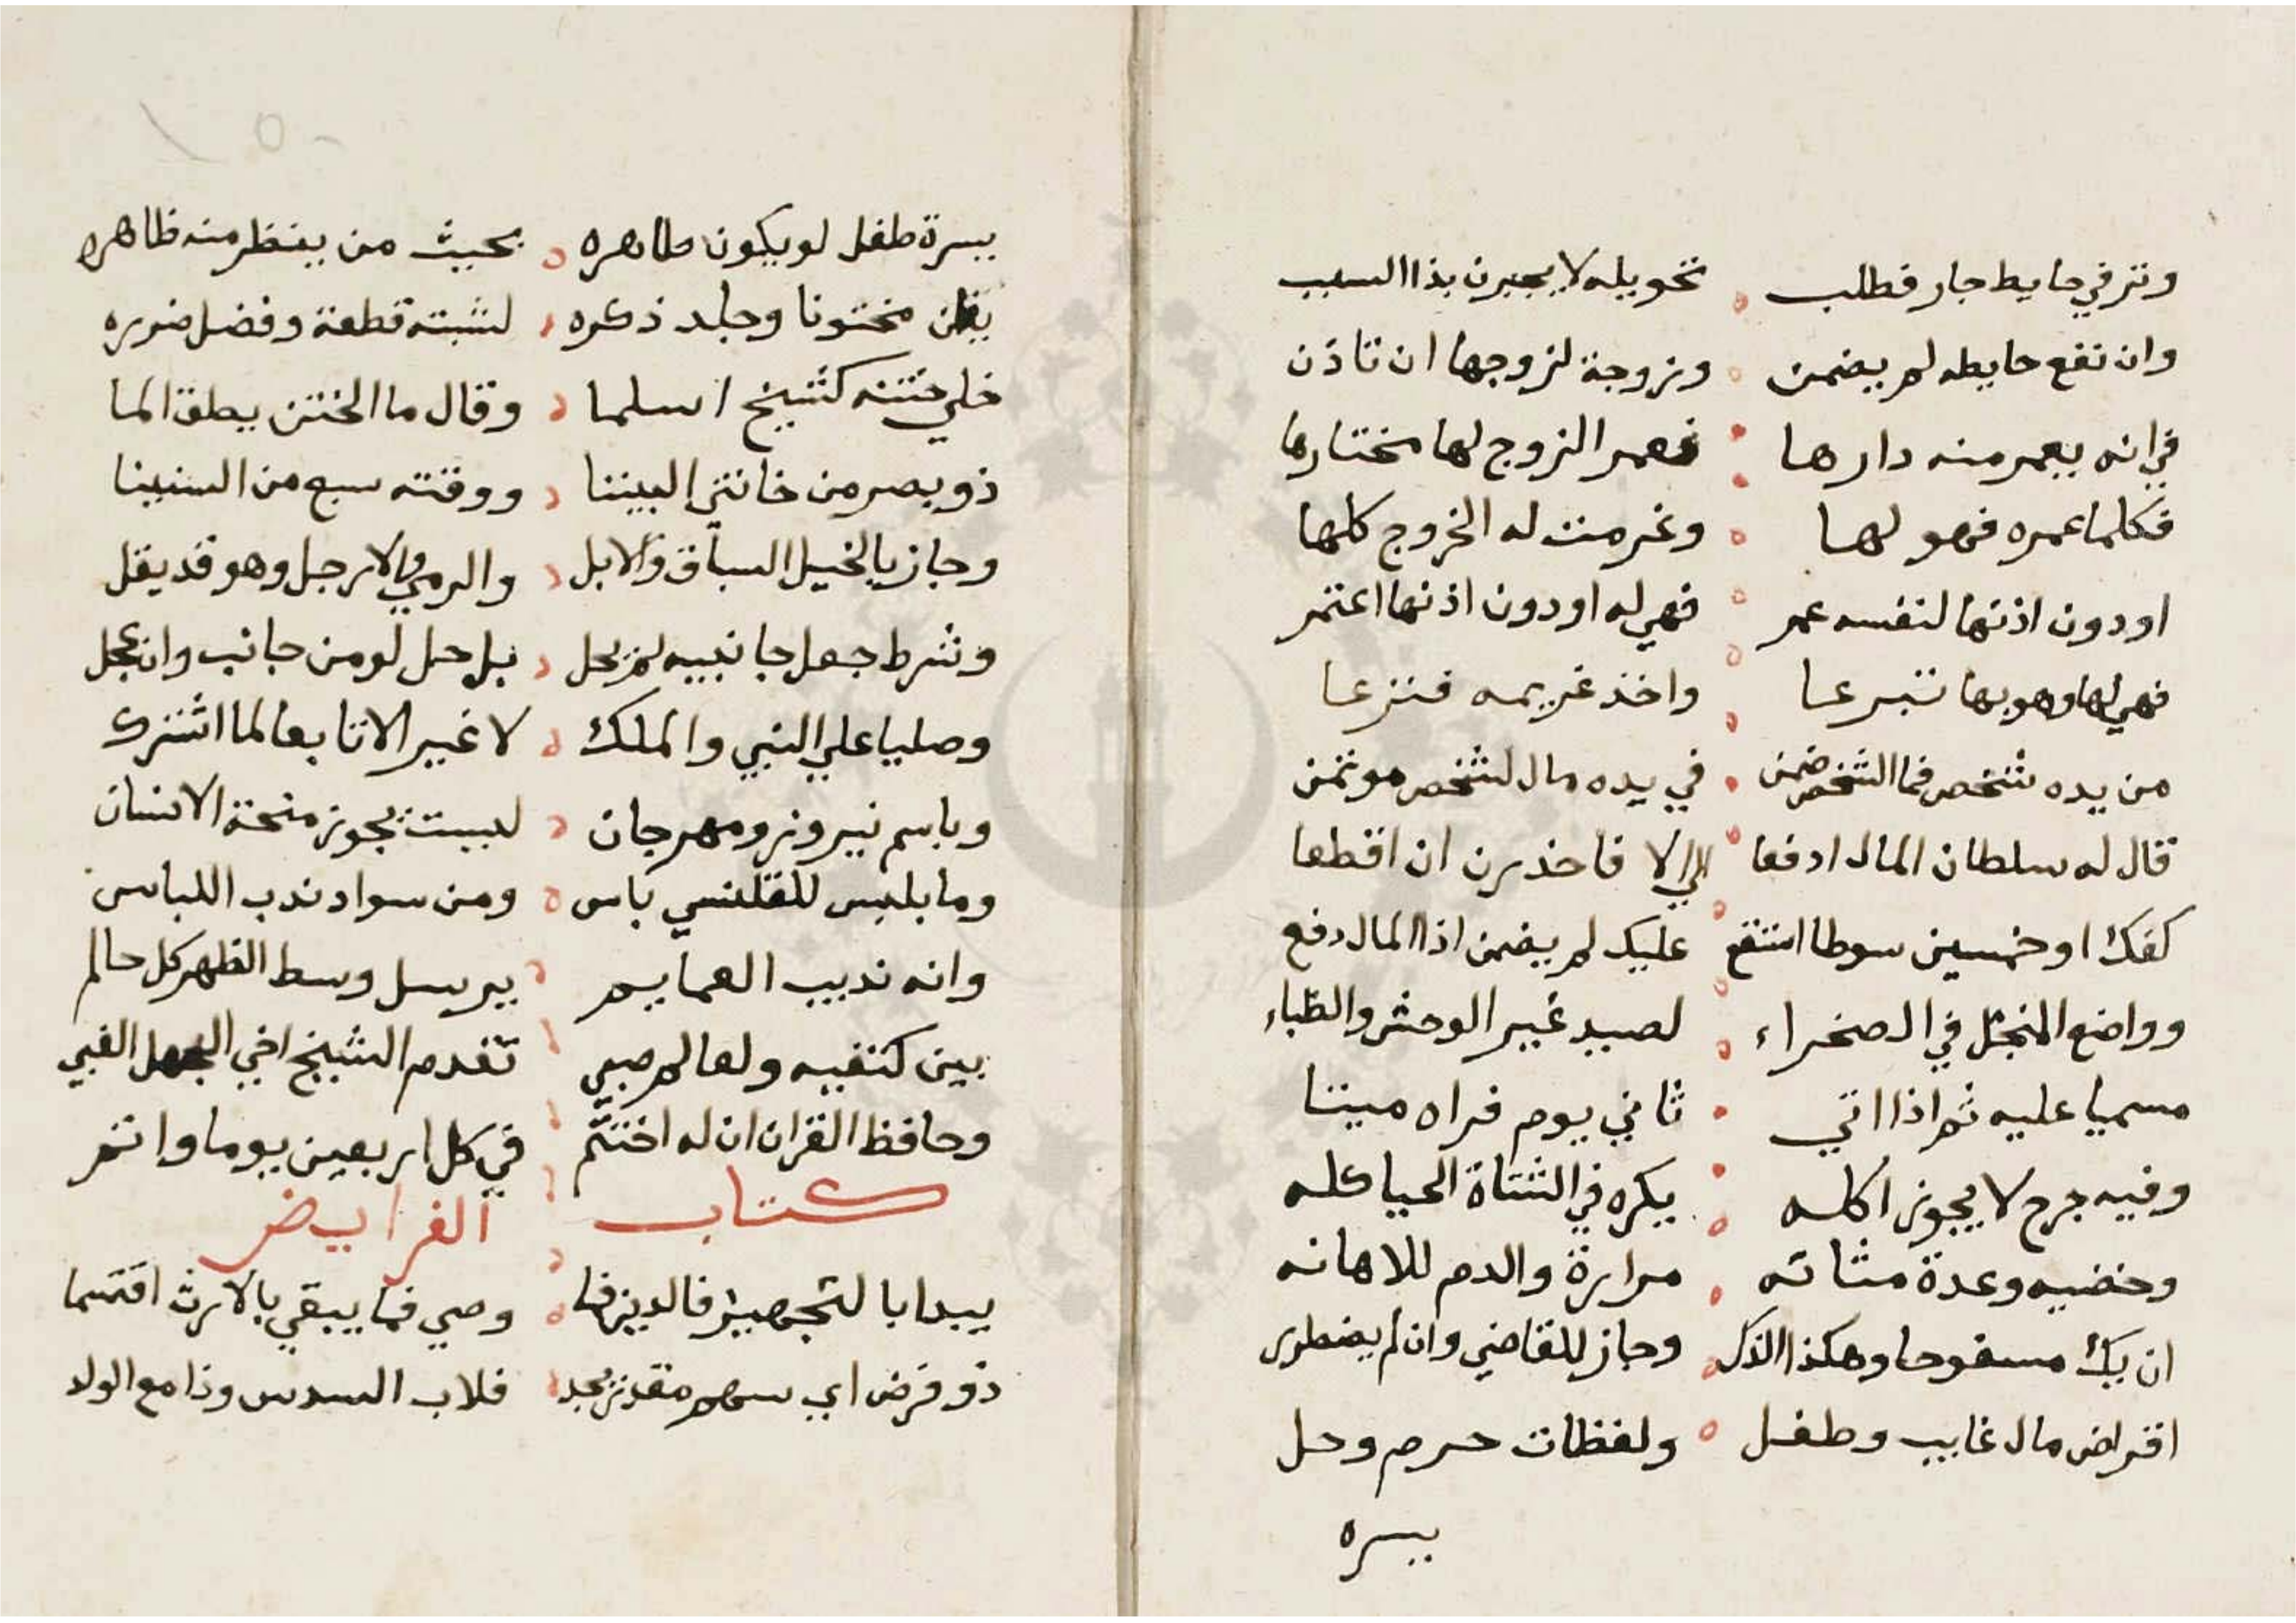 ونز في حايط جار فطلب تحويله لا يجبرن بذا السبب
وان تقع حايطه لم يضمن وزوجة لزوجها ان تاذن
في انه يعمر منه دارها فعمر الزوج لها مختارها
فكلما عمره فهو لها وغرمت له الخروج كلها
او دون اذنها لنفسه عمر فهي له او دون اذنها اعتمر
فهي لها وهو بها تبرعا واخذ غريمه فنزعا
من يده شخص فما الشخص ضمن في يده مال لشخص موتمن
قال له سلطان المال ادفعا الي الا فاحذرن ان اقطعا
كفك او خمسين سوطا عليك لم يضمن اذا المال دفع
وواضع المنجل في الصخراء لصيد غير الوحش والظباء
مسميا عليه ثم اذا اتي ثاني يوم فراه ميتا
وفيه جرح لا يجوز اكله يكره في الشتاة الحيا كله
وخضيه وغدة مثانه مرارة والدم للاهانه
ان يك مسفوحا وهكذا الذكر وجاز للقاضي وان لم يضطرر
اقراض مال غايب وطفل ولفظات حرم وحل
يسره
يسرة طفل لو يكون طاهره بحيث من ينظر منه ظاهره
يظن مختونا وجلد ذكره لشبته قطعة وفضل ضرره
خلي ختنه كشيخ اسلما وقال ما الختن يطق الما
ذو بصر من خانتي البيننا ووقته سبع من السنينا
وجاز بالخيل السباق والابل والرمي والارجل وهو قد يقل
وشرط جعل جانبيه لم يحل بل حل لو من جانب وان عجل
وصليا علي النبي والملك لا غير الا تابعا لما اشترك
وباسم نيروز ومهرجان ليست تجوز منحة الانسان
وما بلبس للقلنسي باس ومن سواد ندب اللباس
وانه ندب العمايم يرسل وسط الظهر كل حالم
بين كتفيه ولعالم صبي تقدم الشيخ اخي الجهل الغبي
وحافظ القران ان له اختتم في كل اربعين يوما وانتم
كتاب الفرايض
يبدا بالتجهيز فالدين فما وصي فما يبقي بالارث اقتسما
ذو فرض اي سهم مقدر يجد فلاب السدس وذا مع الولد